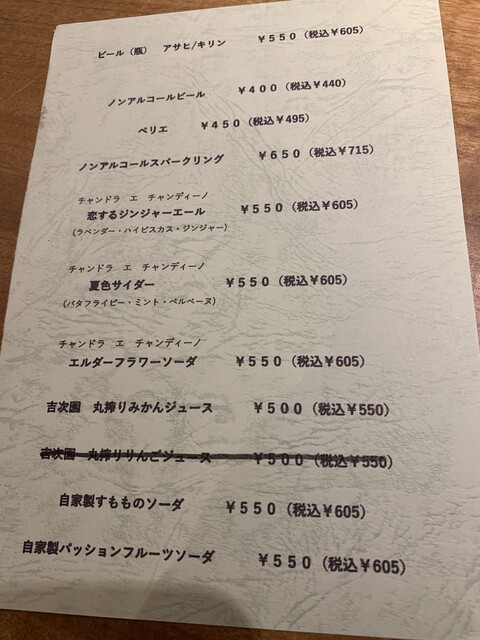 ビール（瓶） アサヒ/キリン ￥５５０（税込￥605）
ノンアルコールビール ￥４００（税込￥440）
ペリエ ￥４５０（税込￥495）
ノンアルコールスパークリング ￥６５０（税込￥715）
チャンドラ エ チャンディーノ
恋するジンジャーエール ￥５５０（税込￥605）
（ラベンダー・ハイビスカス・ジンジャー）
チャンドラ エ チャンディーノ
夏色サイダー ￥５５０（税込￥605）
（バタフライピー・ミント・ベルベーヌ）
チャンドラ エ チャンディーノ
エルダーフラワーソーダ ￥５５０（税込￥605）
吉次園 丸搾りみかんジュース ￥５００（税込￥550）
吉次園 丸搾りりんごジュース ￥５００（税込￥550）
自家製すもものソーダ ￥５５０（税込￥605）
自家製パッションフルーツソーダ ￥５５０（税込￥605）